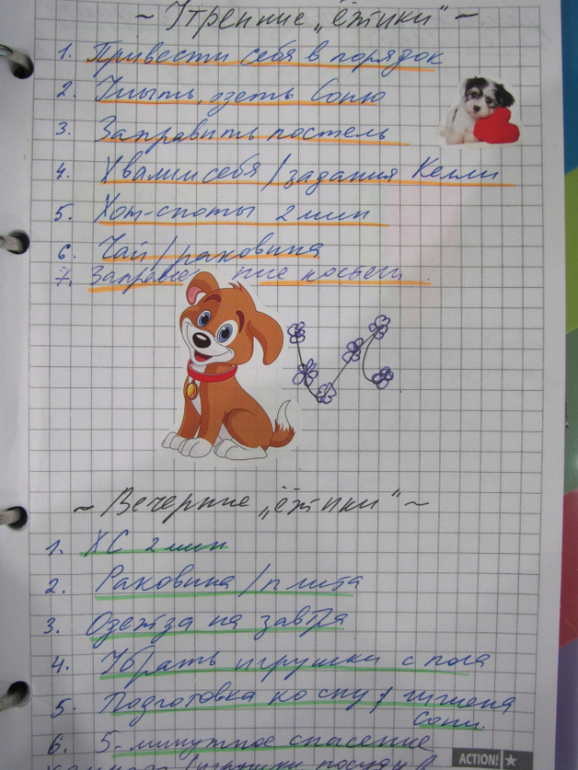 ~ Утренние „ёжики" ~
1. Привести себя в порядок
2. Умыть, одеть Соню
3. Заправить постель
4. Хвалим себя / задания Келли
5. Хот-споты 2 мин
6. Чай / раковина
7.
~ Вечерние „ёжики" ~
1. ХС 2 мин
2. Раковина / плита
3. Одежда на завтра
4. Убрать игрушки с пола
5. Подготовка ко сну / гигиена
Сони
6. 5-минутное спасение
игрушки, посуду в
ACTION!